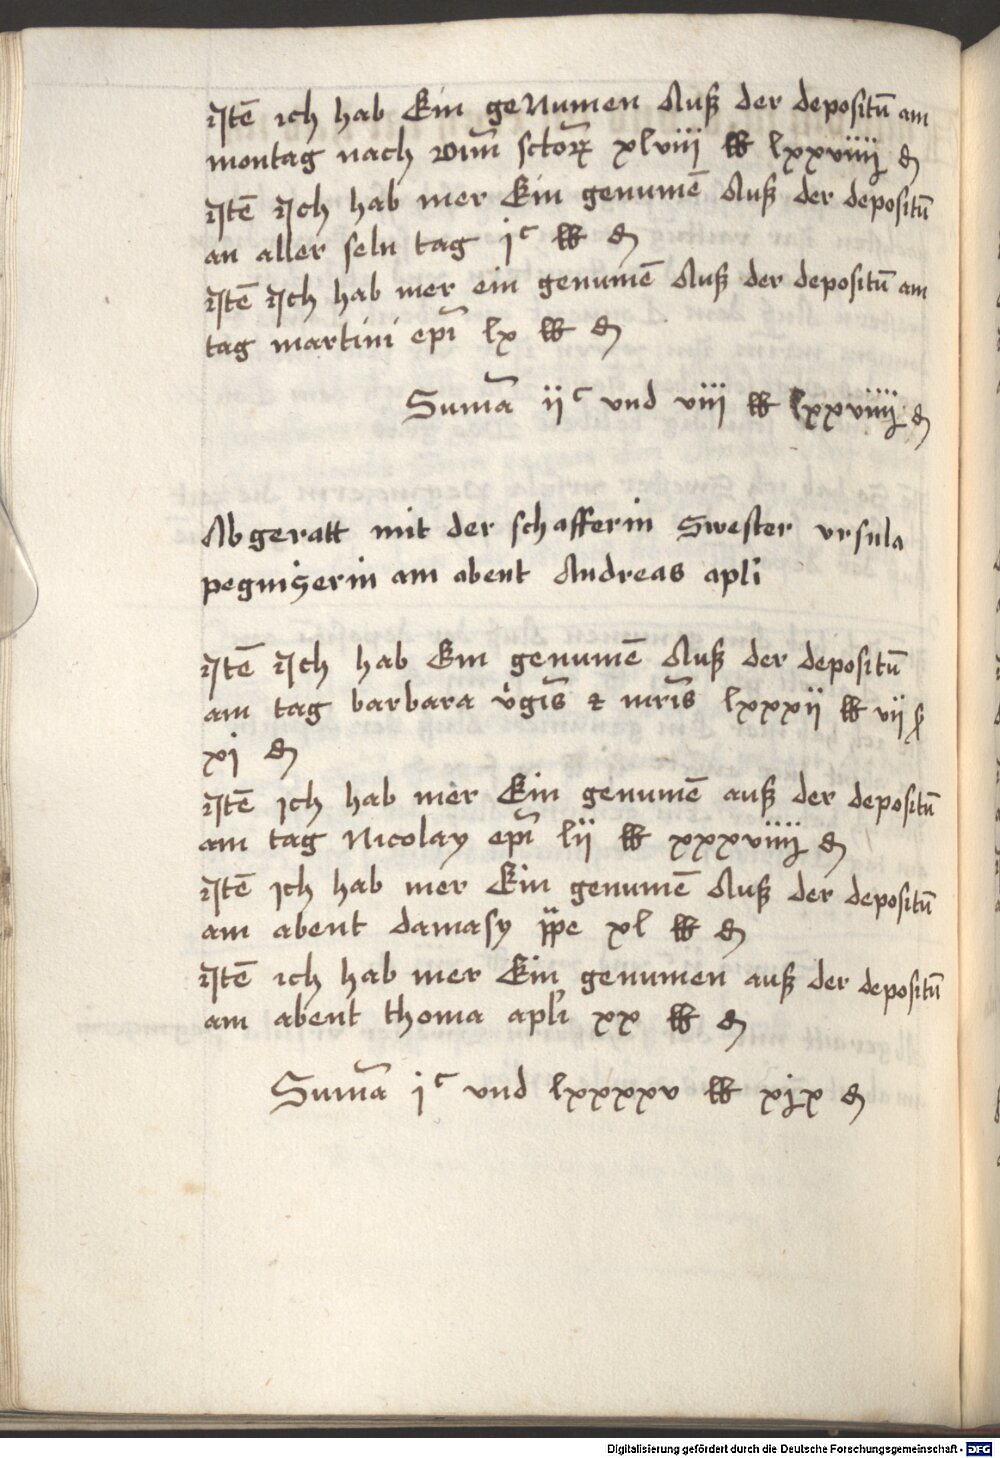 Jtē ich hab Ein geNumen Auß der depositū am
montag nach oīm sctoꝝ xlviii ℔ lxxviiii ₰
Jtē Jch hab mer Ein genumē Auß der depositū
an aller seln tag jᶜ ℔ ₰
Jtē Jch hab mer ein genumē Auß der depositū am
tag martini epī lx ℔ ₰
Sumā iiᶜ vnd viii ℔ lxxviiii ₰
Abgeratt mit der schafferin Swester vrsula
pegniꜩerin am abent Andreas apli
Jtē Jch hab Ein genumē Auß der depositū
am tag barbara v̓gīs ⁊ mrīs lxxxii ℔ vii ß
xi ₰
Jtē Jch hab mer Ein genumē auß der depositū
am tag Nicolay epī lii ℔ xxxviiii ₰
Jtē Jch hab mer Ein genumē Auß der depositū
am abent damasy ppe xl ℔ ₰
Jtē ich hab mer Ein genumen auß der depositū
am abent thoma apli xx ℔ ₰
Sumā jᶜ vnd lxxxxv ℔ xjx ₰
Digitalisierung gefördert durch die Deutsche Forschungsgemeinschaft - DFG